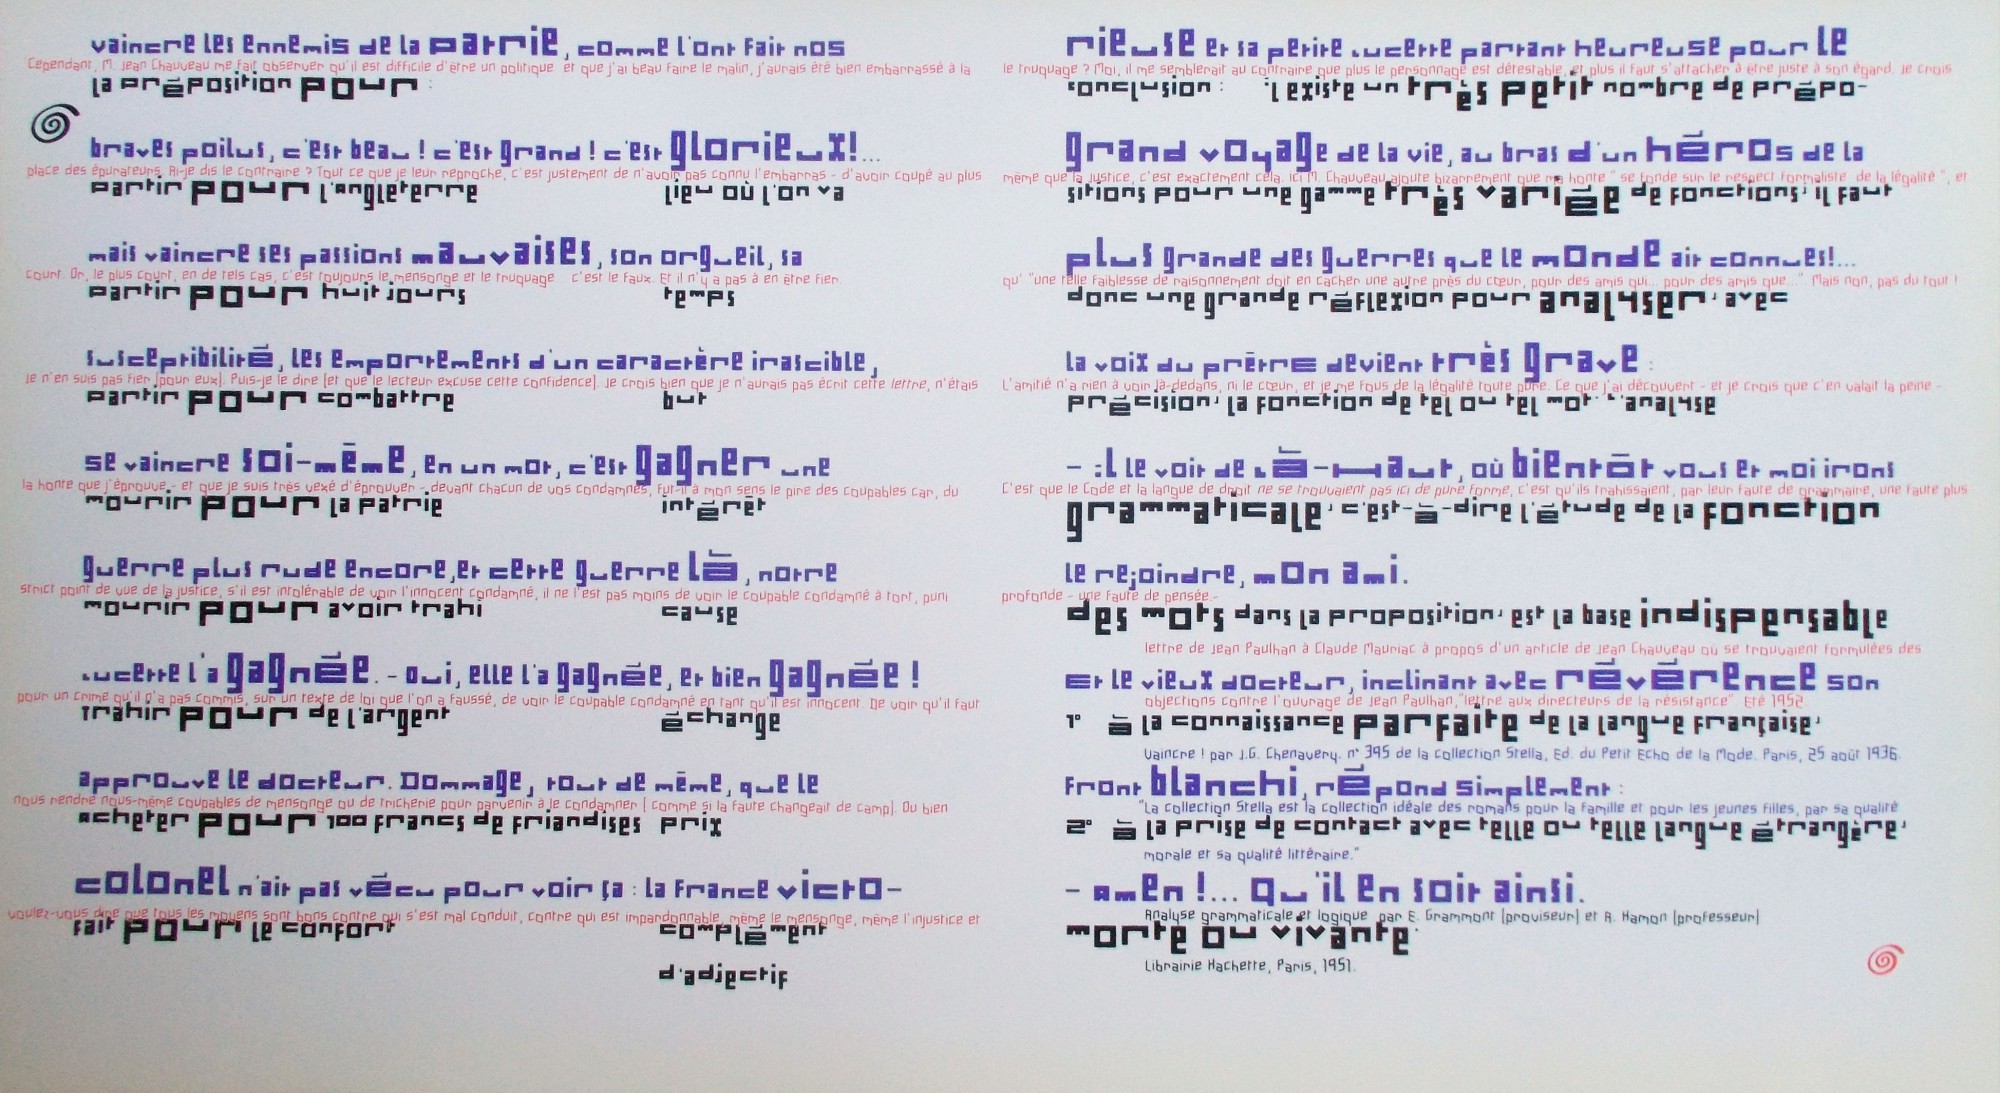 vaincre les ennemis de la patrie, comme l'ont fait nos
Cependant, M. Jean Chauveau me fait observer qu'il est difficile d'être un politique et que j'ai beau faire le malin, j'aurais été bien embarrassé à la
la préposition pour :
braves poilus, c'est beau ! c'est grand ! c'est glorieux!...
place des épurateurs. Ai-je dis le contraire ? Tout ce que je leur reproche, c'est justement de n'avoir pas connu l'embarras - d'avoir coupé au plus
partir pour l'angleterre lieu où l'on va
mais vaincre ses passions mauvaises, son orgueil, sa
court. Or, le plus court, en de tels cas, c'est toujours le mensonge et le truquage c'est le faux. Et il n'y a pas à en être fier.
partir pour huit jours temps
susceptibilité, les emportements d'un caractère irascible,
je n'en suis pas fier [pour eux]. Puis-je le dire [et que le lecteur excuse cette confidence]. Je crois bien que je n'aurais pas écrit cette lettre, n'étais
partir pour combattre but
se vaincre soi-même, en un mot, c'est gagner une
la honte que j'éprouve - et que je suis très vexé d'éprouver - devant chacun de vos condamnés, fut-il à mon sens le pire des coupables car, du
mourir pour la patrie intérêt
guerre plus rude encore, et cette guerre là, notre
strict point de vue de la justice, s'il est intolérable de voir l'innocent condamné, il ne l'est pas moins de voir le coupable condamné à tort, puni
mourir pour avoir trahi cause
Lucette l'a gagnée. - oui, elle l'a gagnée, et bien gagnée !
pour un crime qu'il n'a pas commis, sur un texte de loi que l'on a faussé, de voir le coupable condamné en tant qu'il est innocent. De voir qu'il faut
trahir pour de l'argent échange
approuve le docteur. Dommage, tout de même, que le
nous rendre nous-même coupables de mensonge ou de tricherie pour parvenir à le condamner [ comme si la faute changeait de camp]. Ou bien
acheter pour 100 francs de friandises prix
colonel n'ait pas vécu pour voir ça : la France victo-
voulez-vous dire que tous les moyens sont bons contre qui s'est mal conduit, contre qui est impardonnable, même le mensonge, même l'injustice et
fait pour le confort complément
d'adjectif
rieuse et sa petite Lucette partant heureuse pour le
le truquage ? Moi, il me semblerait au contraire que plus le personnage est détestable, et plus il faut s'attacher à être juste à son égard. Je crois
conclusion : il existe un très petit nombre de prépo-
grand voyage de la vie, au bras d'un héros de la
même que la justice, c'est exactement cela. Ici M. Chauveau ajoute bizarrement que ma honte " se fonde sur le respect formaliste de la légalité ", et
sitions pour une gamme très variée de fonctions, il faut
plus grande des guerres que le monde ait connues!...
qu' "une telle faiblesse de raisonnement doit en cacher une autre près du cœur, pour des amis qui... pour des amis que..." Mais non, pas du tout !
donc une grande réflexion pour analyser, avec
la voix du prêtre devient très grave :
L'amitié n'a rien à voir là-dedans, ni le cœur, et je me fous de la légalité toute pure. Ce que j'ai découvert - et je crois que c'en valait la peine -
précision, la fonction de tel ou tel mot. L'analyse
- il le voit de là-Haut, où bientôt vous et moi irons
C'est que le Code et la langue de droit ne se trouvaient pas ici de pure forme, c'est qu'ils trahissaient, par leur faute de grammaire, une faute plus
grammaticale, c'est-à-dire l'étude de la fonction
le rejoindre, mon ami.
profonde - une faute de pensée.-
des mots dans la proposition, est la base indispensable
lettre de Jean Paulhan à Claude Mauriac à propos d'un article de Jean Chauveau où se trouvaient formulées des
Et le vieux docteur, inclinant avec révérence son
objections contre l'ouvrage de Jean Paulhan,"lettre aux directeurs de la résistance" Eté 1952
1° à la connaissance parfaite de la langue française,
Vaincre ! par J.G. Chenavery. n° 395 de la collection Stella, Ed. du Petit Echo de la Mode. Paris, 25 août 1936.
front blanchi, répond simplement :
"La collection Stella est la collection idéale des romans pour la famille et pour les jeunes filles, par sa qualité
2° à la prise de contact avec telle ou telle langue étrangère,
morale et sa qualité littéraire."
- amen !... qu'il en soit ainsi.
Analyse grammaticale et logique par E. Grammont [proviseur] et A. Hamon [professeur]
morte ou vivante.
Librairie Hachette, Paris, 1951.